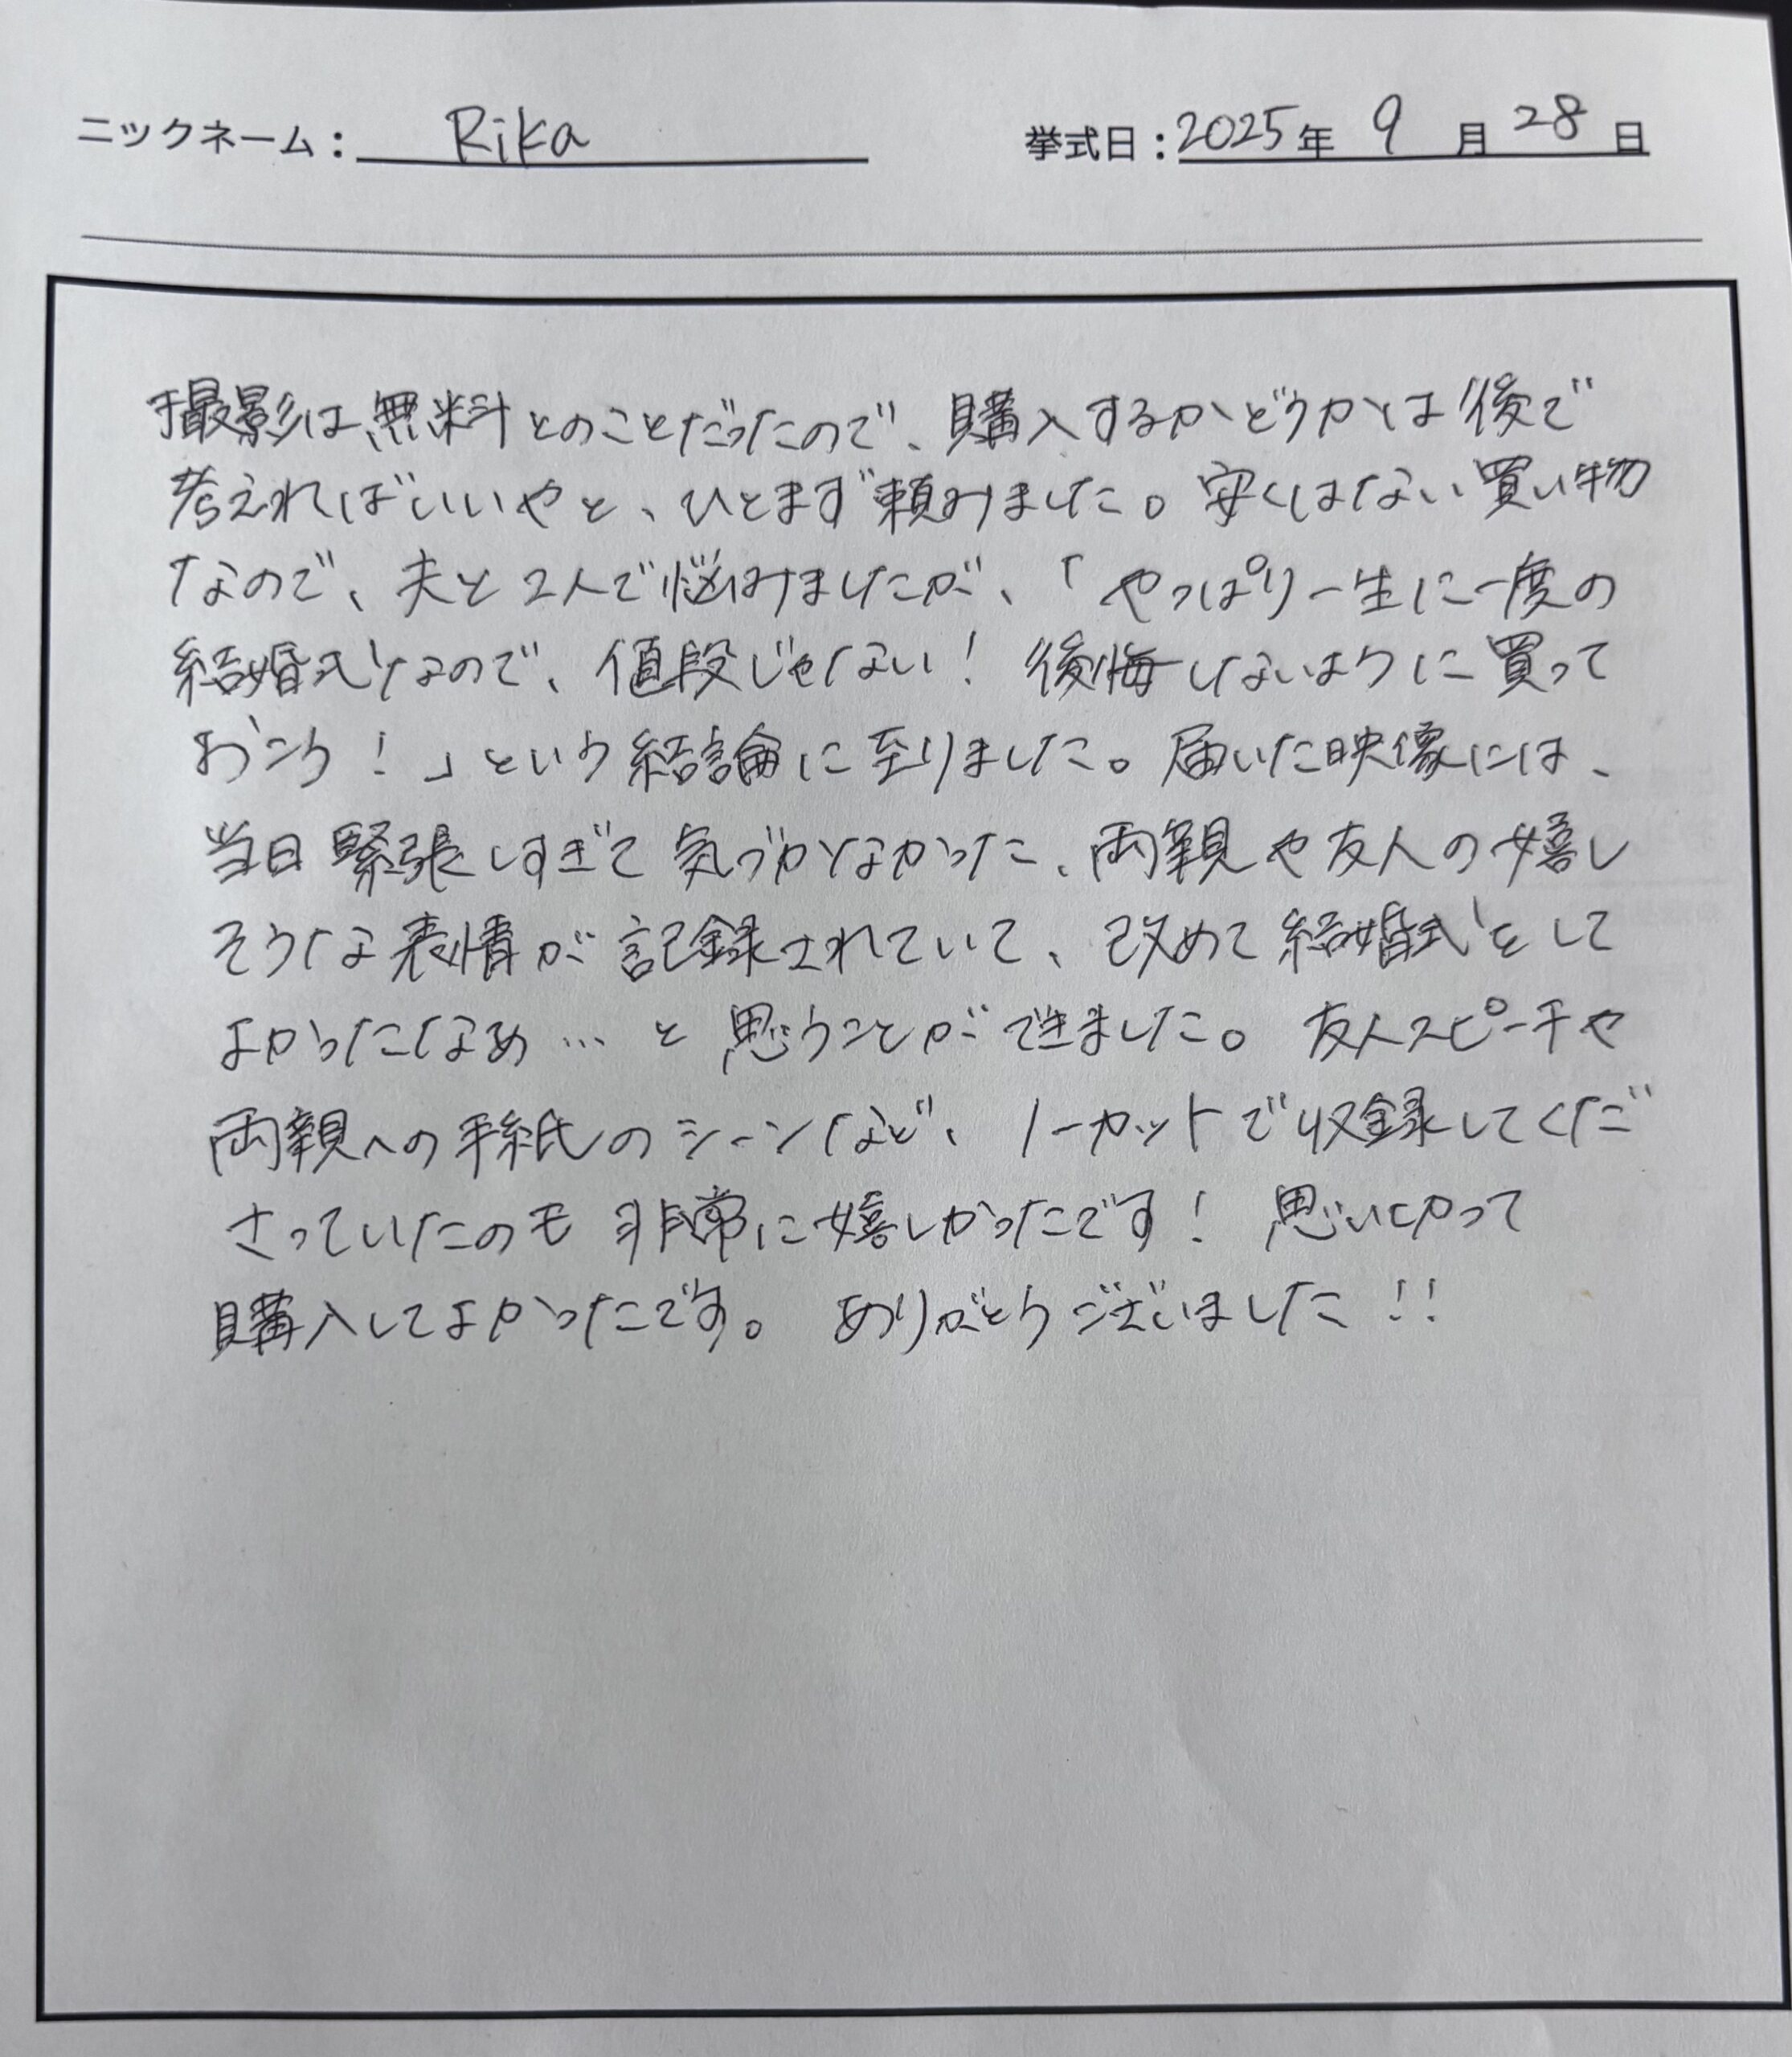 ニックネーム： Rika 挙式日：2025年 9月 28日
撮影は無料とのことだったので、購入するかどうかは後で
考えればいいやと、ひとまず頼みました。安くはない買い物
なので、夫と2人で悩みましたが、「やっぱり一生に一度の
結婚式なので、値段じゃない！後悔しないように買って
おこう！」という結論に至りました。届いた映像には、
当日緊張しすぎて気づかなかった、両親や友人の嬉し
そうな表情が記録されていて、改めて結婚式をして
よかったなぁ…と思うことができました。友人スピーチや
両親への手紙のシーンなど、ノーカットで収録してくだ
さっていたのも非常に嬉しかったです！思いきって
購入してよかったです。ありがとうございました！！